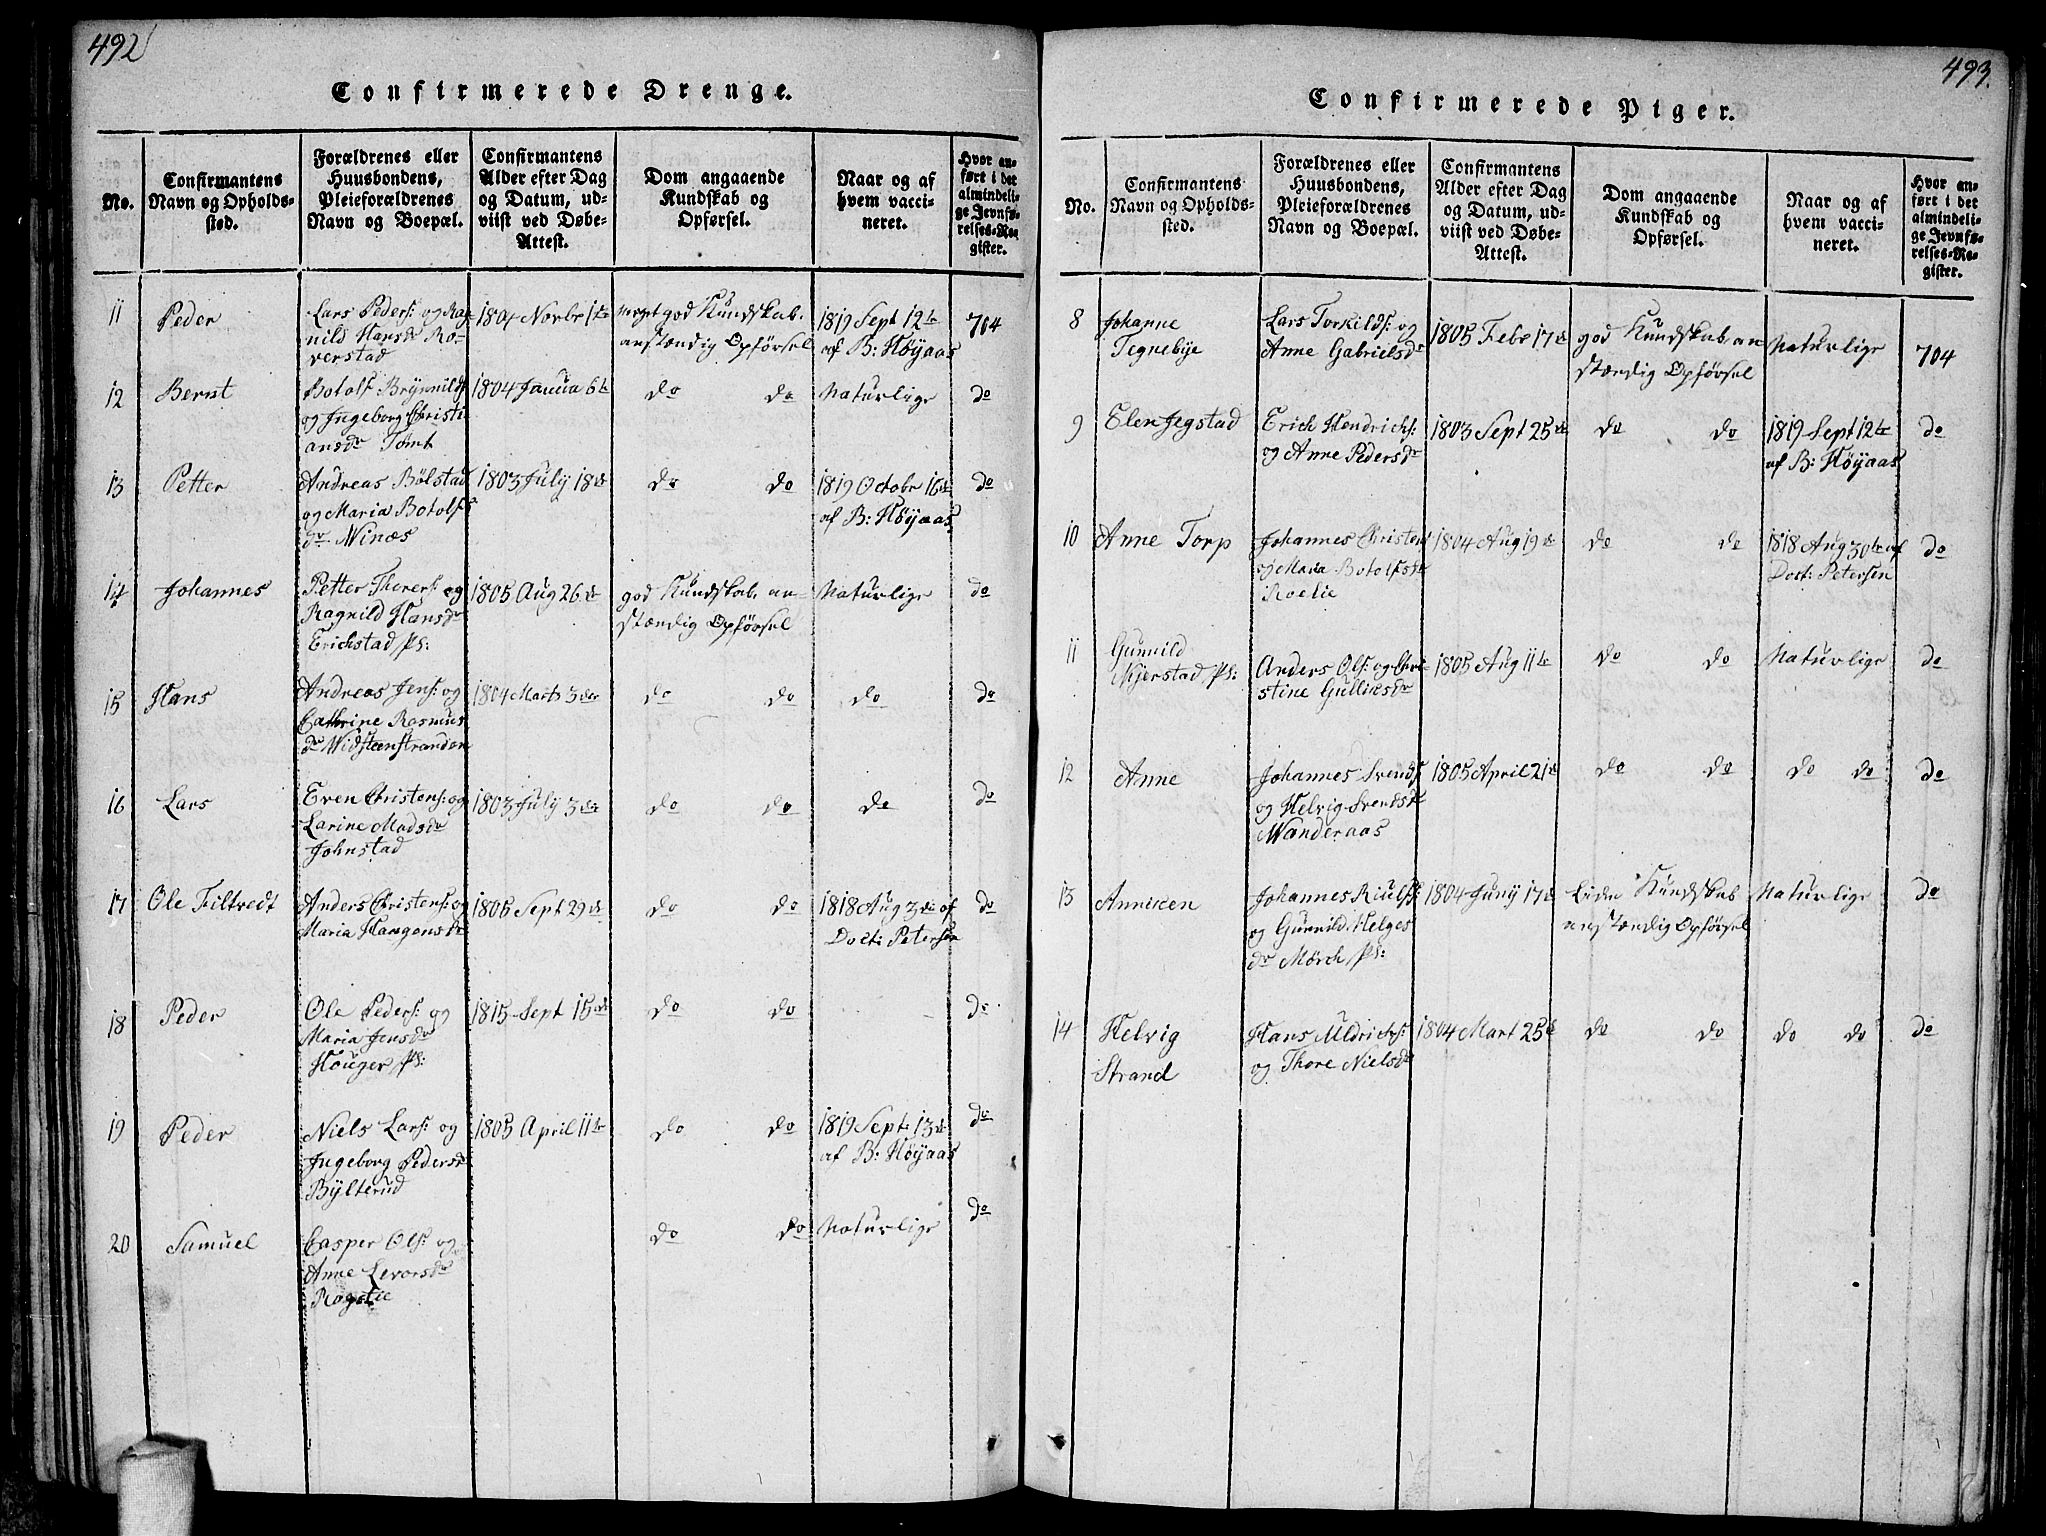 492
Confirmerede Drenge.
No.
Confirmantens
Navn og Opholds-
sted.
Forældrenes eller
Huusbondens,
Pleieforældrenes
Navn og Boepæl.
Confirmantens
Alder efter Dag
og Datum, ud-
viist ved Døbe-
Attest.
Dom angaaende
Kundskab og
Opførsel.
Naar og af
hvem vacci-
neret.
Hvor an-
ført i det
almindeli-
ge Jevnfø-
relses-Re-
gister.
11 Peder
Lars Peders: og Rag
nild Hansdr Ro-
verstad
1804 Novbr 1te
meget god Kundskab.
anstændig Opförsel
1819 Sept 12te
af B: Höyaas
704
12 Bernt
Botolf Brynnilds
og Ingeborg Christi
ansdr Tomt
1804 Janua 6te
do do
Naturlige
do
13 Petter
Andreas Bölstad
og Maria Botolfs
dr Winæs
1803 July 18de
do do
1819 Octobr 16de
af B: Höyaas
do
14 Johannes
Petter Thorers: og
Ragnild Hansdr
Erichstad Ps:
1805 Aug 26de
god Kundskab. an-
stændig Opförsel
Naturlige
do
15 Hans
Andreas Jens: og
Cathrine Rasmus
dr Widsteenstranden
1804 Marts 3der
do do
do
do
16 Lars
Even Christens: og
Larine Madsdr
Johnstad
1803 July 3de
do do
do
do
17 Ole Filtvedt
Anders Christens: og
Maria Haagensdr
1805 Sept 29de
do do
1818 Aug 3die af
Doct: Petersen
do
18 Peder
Ole Peders: og
Maria Jensdr
Houger Ps:
1815 Sept 15de
do do
do
19 Peder
Niels Lars: og
Ingeborg Pedersdr
Bylterud
1805 April 11te
do do
1819 Sept: 13de
af B: Höyaas
do
20 Samuel
Casper Ols: og
Anne Levorsdr
Rogstie
do do
Naturlige
do
493.
Confirmerede Piger.
No.
Confirmantens
Navn og Opholds-
sted.
Forældrenes eller
Huusbondens,
Pleieforældrenes
Navn og Boepæl.
Confirmantens
Alder efter Dag
og Datum, ud-
viist ved Døbe-
Attest.
Dom angaaende
Kundskab og
Opførsel.
Naar og af
hvem vacci-
neret.
Hvor an-
ført i det
almindeli-
ge Jevnfø-
relses-Re-
gister.
8 Johanne
Tegnebye
Lars Torkilds: og
Anne Gabrielsdr
1805 Febr 17de
god Kundskab, an
stændig Opförsel
Naturlige
704
9 Elen Jegstad
Erich Hendrichs:
og Anne Pedersdr
1803 Sept 25de
do do
1819 Sept 12te
af B: Höyaas
do
10 Anne Torp
Johannes Christens
og Maria Botolfsdr
Roelie
1804 Aug 19de
do do
1818 Aug 30te af
Doct: Petersen
do
11 Gunnild
Kjerstad Ps:
Anders Ols: og Chri
stine Gulliksdr
1805 Aug 11te
do do
Naturlige
do
12 Anne
Johannes Svends:
og Helvig Svendsdr
Wanderaas
1805 April 21de
do do
do do
do
13 Annicen
Johannes Riulfs:
og Gunnild Helges
dr Mörch Ps:
1804 Juny 17de
Liden Kundskab
anstændig Opförsel
Naturlige
do
14 Helvig
Strand
Hans Uldrichs:
og Thore Nielsdr
1804 Mart 25de
do do
do do
do